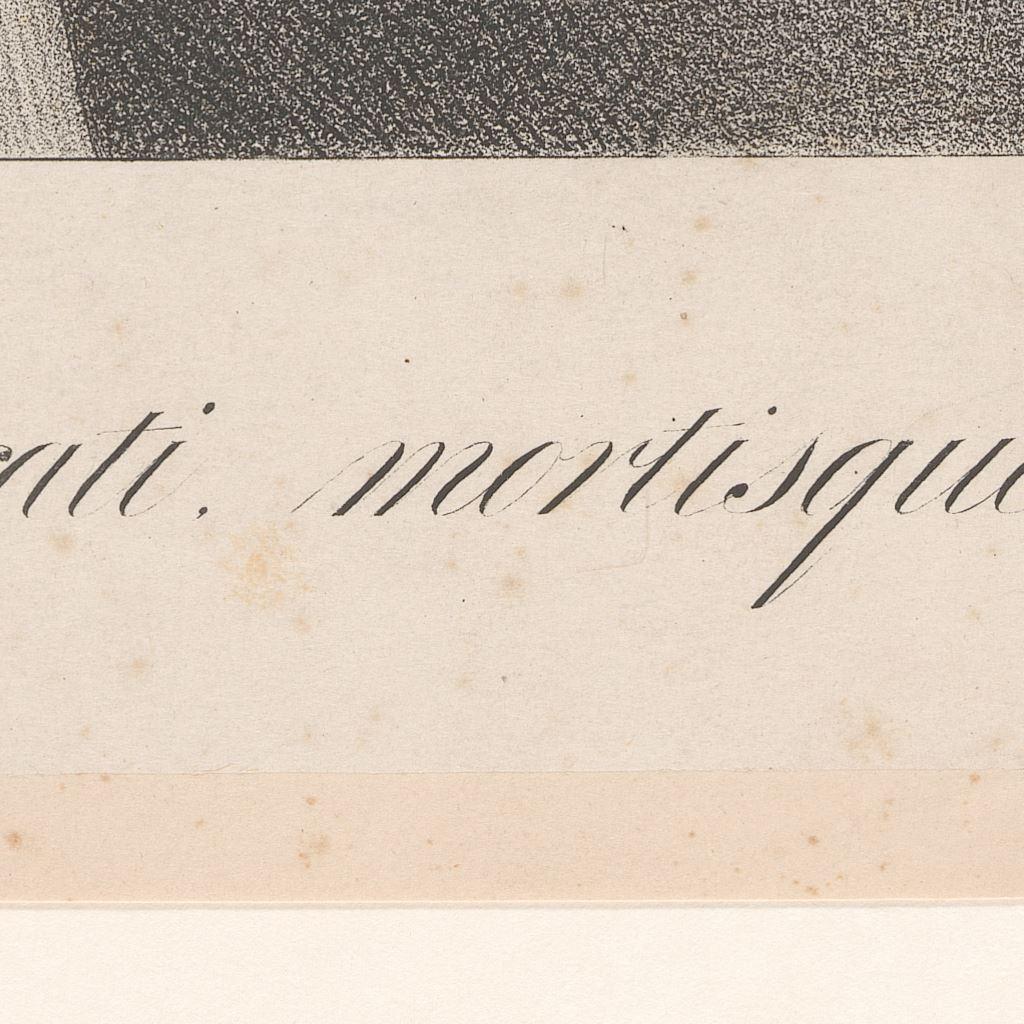 cati, mortisque